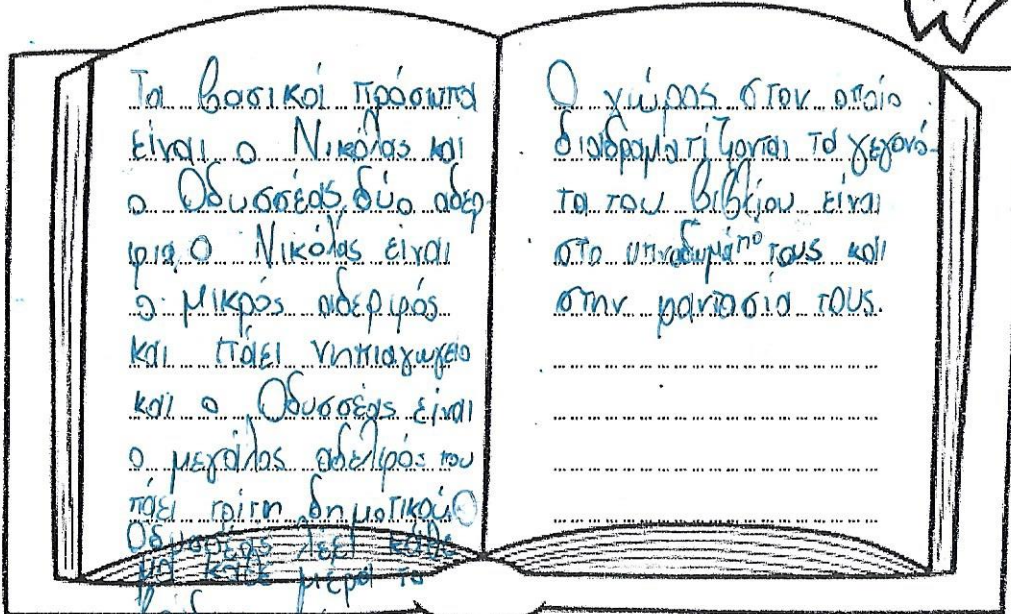 Τα βασικά πρόσωπα
είναι ο Νικόλας και
ο Οδυσσέας δύο αδέρ-
φια. Ο Νικόλας είναι
ο μικρός αδερφός
και πάει νηπιαγωγείο
και ο Οδυσσέας είναι
ο μεγάλος αδελφός που
πάει τρίτη δημοτικού. Ο
Οδυσσέας λέει κάθε
μα κάθε μέρα το
Ο χώρος στον οποίο
διαδραματίζονται τα γεγονό-
τα του βιβλίου είναι
στο υπνοδωμάτιο τους και
στην φαντασία τους.